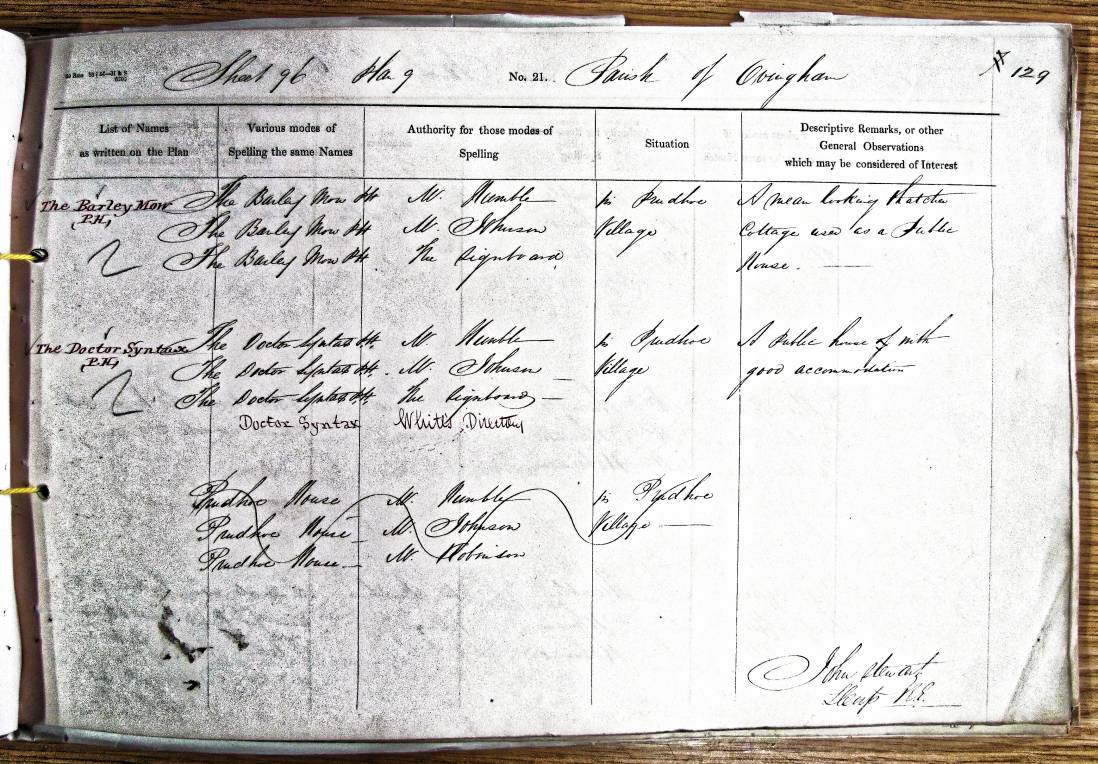 Sheet 96 Plan 9 No. 21. Parish of Ovingham 129
List of Names as written on the Plan
Various modes of Spelling the same Names
Authority for those modes of Spelling
Situation
Descriptive Remarks, or other General Observations which may be considered of Interest
The Barley Mow P.H. The Barley Mow PH Mr. Humble in Prudhoe A mean looking thatched
The Barley Mow PH Mr. Johnson Village Cottage used as a Public
The Barley Mow PH The Signboard House.
The Doctor Syntax P.H. The Doctor Syntax PH. Mr. Humble in Prudhoe A Public house of with
The Doctor Syntax PH. Mr. Johnson Village good accommodation
The Doctor Syntax PH. The Signboard
Doctor Syntax White's Directory
Prudhoe House Mr. Humble in Prudhoe
Prudhoe House Mr. Johnson Village
Prudhoe House Mr. Robinson
John Stewart
R.E.